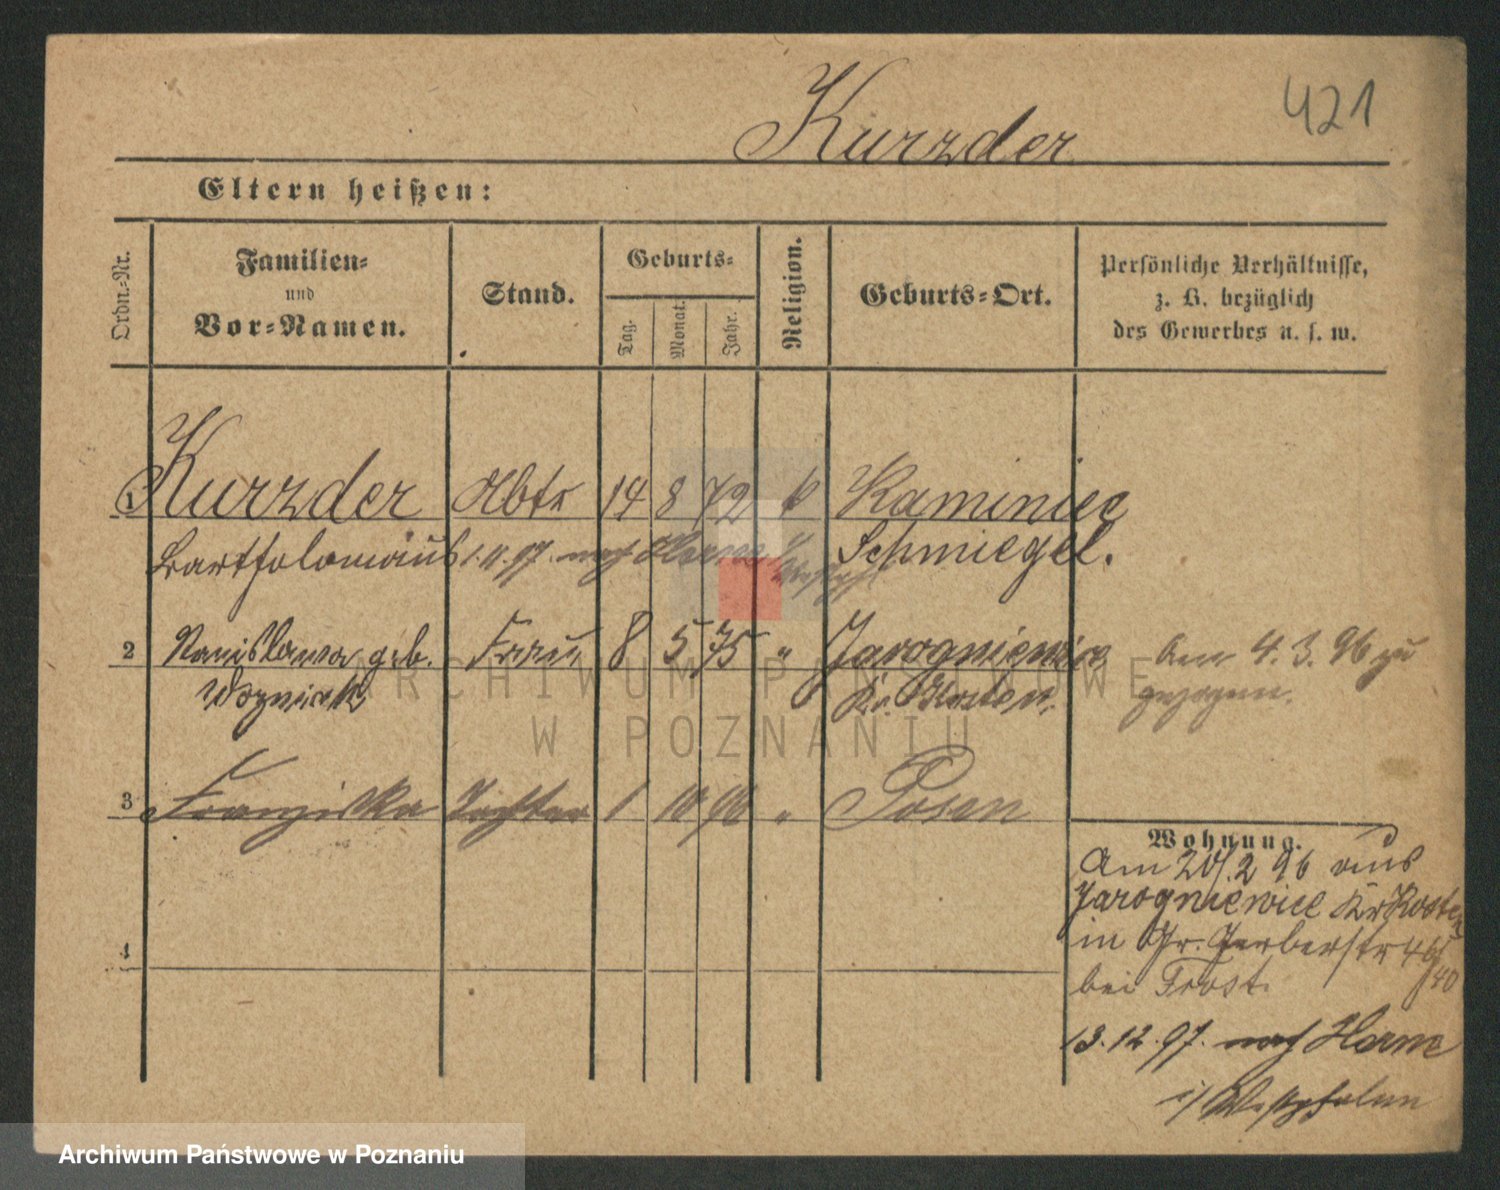 421
Kurzder
Eltern heißen:
Ordn.-Nr.
Familien-
und
Vor-Namen.
Stand.
Geburts-
Tag.
Monat.
Jahr.
Religion.
Geburts-Ort.
Persönliche Verhältnisse,
z. B. bezüglich
des Gewerbes u. s. w.
1 Kurzder Arbtr 14 8 72 k Kaminiec
Bartholomäus 1.11.97. nach Herne i/ Schmiegel.
2 Stanislawa geb. Frau 8 5 75 " Jarogniewice den 4.3.96 zu
Wozniak Kr. Kosten. gezogen.
3 Franziska Tochter 1 10 96 " Posen
4
Wohnung.
Am 20/.2 96 aus
Jarogniewice Kr Kosten
in Gr. Gerberstr 40
bei Frost.
13.12.97. nach Herne
i/ Westphalen
ARCHIWUM PAŃSTWOWE
W POZNANIU
Archiwum Państwowe w Poznaniu